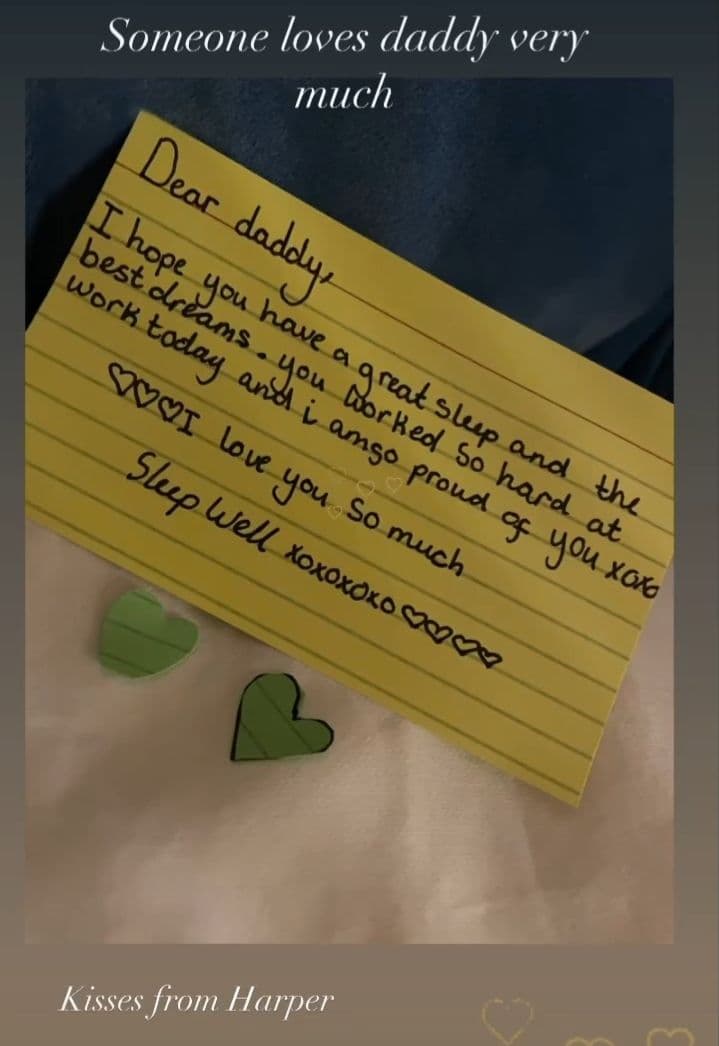 Someone loves daddy very
much
Dear daddy,
I hope you have a great sleep and the
best dreams. you worked so hard at
work today and i am so proud of you xoxo
♡♡♡I love you so much
Sleep Well xoxoxoxo ♡♡♡♡
Kisses from Harper